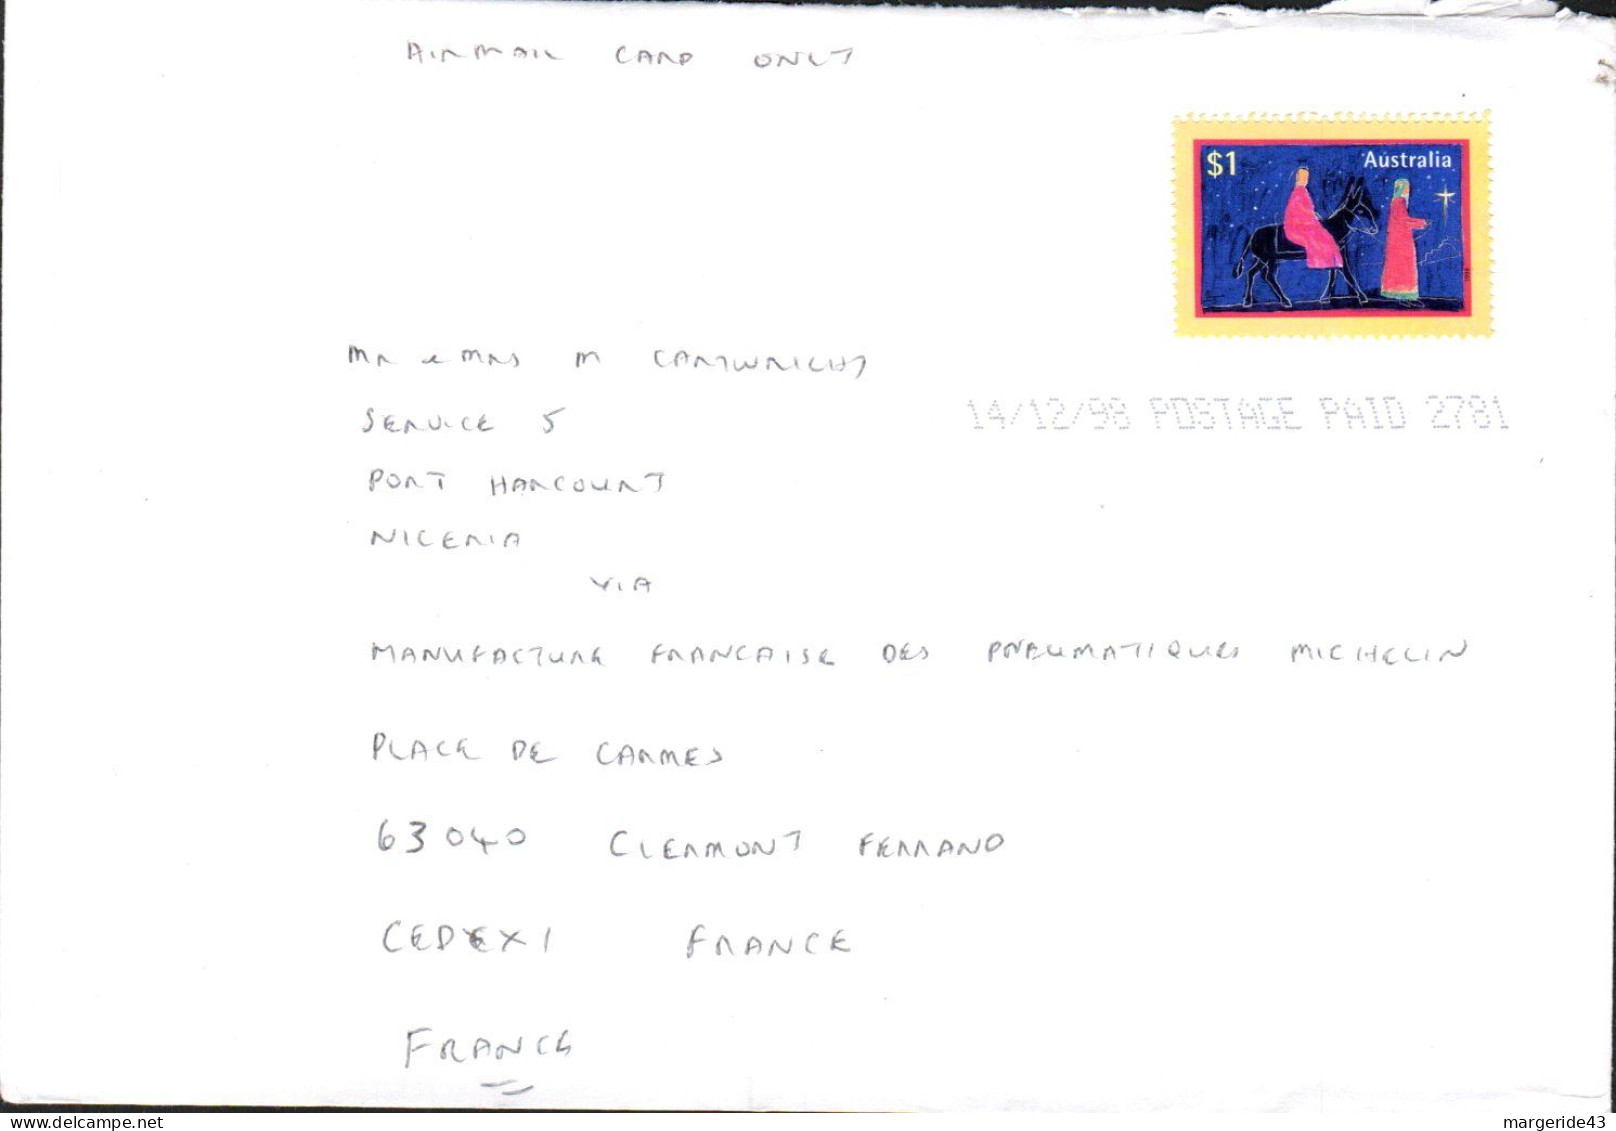 AIRMAIL CARD ONLY
$1 Australia
MR & MRS M CARTWRIGHT
14/12/98 POSTAGE PAID 2781
SERVICE 5
PORT HARCOURT
NIGERIA
VIA
MANUFACTURE FRANCAISE DES PNEUMATIQUES MICHELIN
PLACE DE CARMES
63040 CLERMONT FERRAND
CEDEX 1 FRANCE
FRANCE
delcampe.net
margeride43